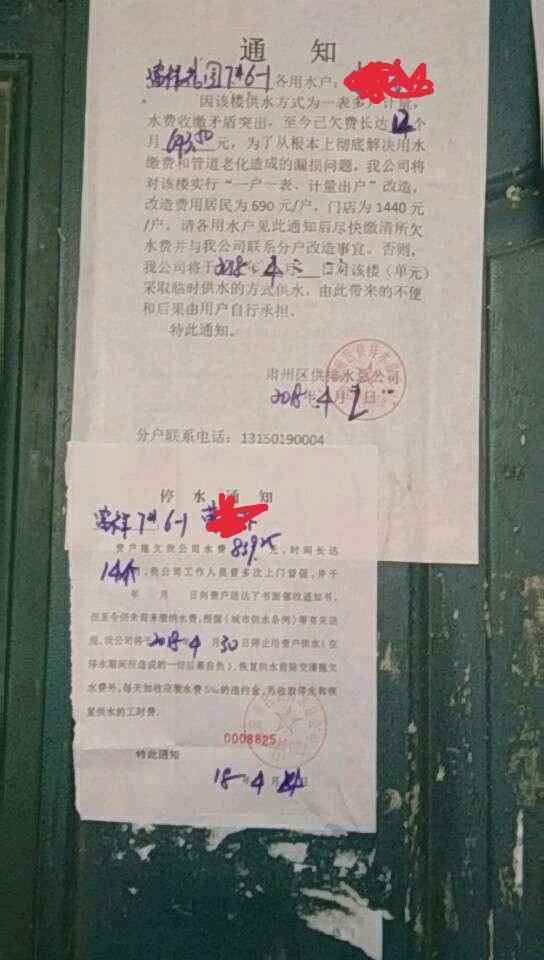 通知
7#6-1各用水户：
因该楼供水方式为一表多户计量，
水费收缴矛盾突出，至今已欠费长达12个
月693.50元，为了从根本上彻底解决用水
缴费和管道老化造成的漏损问题，我公司将
对该楼实行“一户一表、计量出户”改造，
改造费用居民为690元/户，门店为1440元
/户。请各用水户见此通知后尽快缴清所欠
水费并与我公司联系分户改造事宜。否则，
我公司将于2018年4月 日对该楼（单元）
采取临时供水的方式供水，由此带来的不便
和后果由用户自行承担。
特此通知。
肃州区供排水总公司
2018年4月2日
分户联系电话：13150190004
停水通知
7#6-1
贵户拖欠我公司水费859.25元，时间长达
14个，我公司工作人员曾多次上门督促，并于
年 月 日向贵户送达了书面催收通知书，
但至今仍未前来缴纳水费，根据《城市供水条例》等有关法
规，我公司将于2018年4月30日停止给贵户供水（在
停水期间所造成的一切后果自负），恢复供水前除交清拖欠
水费外，每天加收应缴水费5‰的违约金，另收取停水和恢
复供水的工时费。
0008825
特此通知
18年4月 日